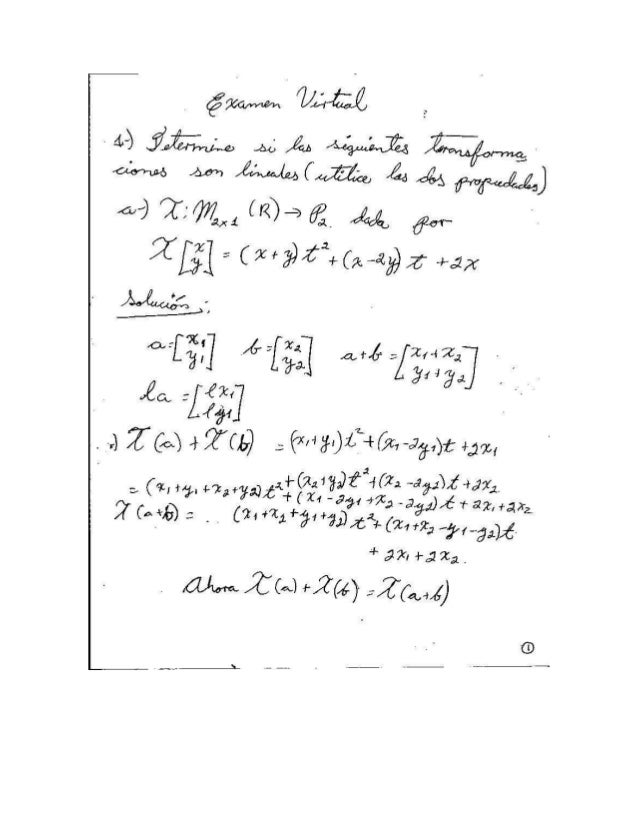 Examen Virtual
1-) Determine si las siguientes transforma
ciones son lineales (utilice las dos propiedades)
a-) T: M₂ₓ₁ (R) → P₂ dada por
T [x y] = (x+y) t² + (x-2y) t + 2x
Solución:
a = [x₁ y₁] b = [x₂ y₂] a+b = [x₁+x₂ y₁+y₂]
la = [lx₁ ly₁]
T(a) + T(b) = (x₁+y₁)t² + (x₁-2y₁)t + 2x₁
+ (x₂+y₂)t² + (x₂-2y₂)t + 2x₂
= (x₁+y₁+x₂+y₂)t² + (x₁-2y₁+x₂-2y₂)t + 2x₁+2x₂
T(a+b) = (x₁+x₂+y₁+y₂)t² + (x₁+x₂-y₁-y₂)t
+ 2x₁+2x₂.
Ahora T(a) + T(b) = T(a+b)
1